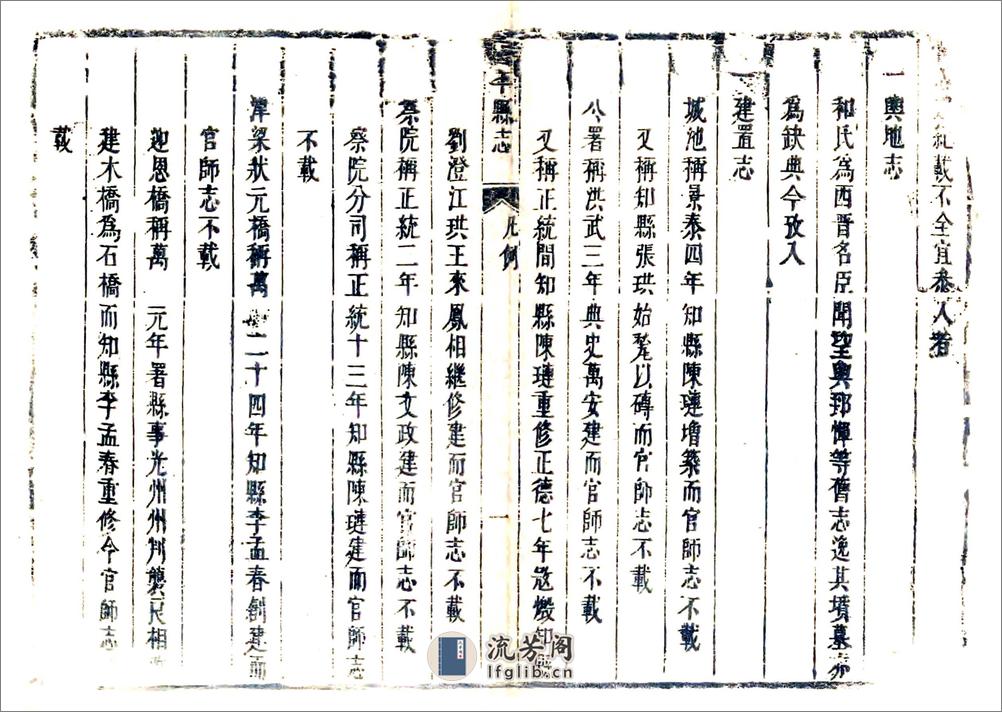 紀載不全宜叅入者
一輿地志
和氏爲西晋名臣聞望與郅惲等舊志逸其墳墓亦
爲缺典今攷入
一建置志
城池稱景泰四年知縣陳璉增築而官師志不載
又稱知縣張珙始甃以磚而官師志不載
公署稱洪武三年典史萬安建而官師志不載
又稱正統間知縣陳璉重修正德七年寇燬知縣
平縣志 凡例 一
劉澄江珙王來鳳相繼修建而官師志不載
察院稱正統二年知縣陳文政建而官師志不載
察院分司稱正統十三年知縣陳璉建而官師志
不載
津梁狀元橋稱萬二十四年知縣李孟春創建而
官師志不載
迎恩橋稱萬 元年署縣事光州州判龔尺相
建木橋爲石橋而知縣李孟春重修今官師志
載
流芳阁
lfglib.com.cn